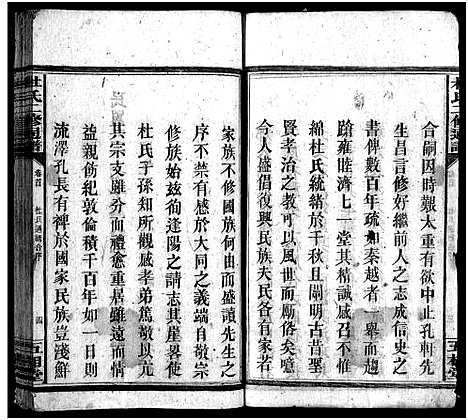 合嗣因時艱太重有欲中止孔軒先
生昌言修好繼前人之志成信史之
書俾數百年疏如秦越者一舉而趨
蹌雍睦濟濟一堂其精誠感召永
綿杜氏統緒於千秋旦闡明古昔聖
賢孝治之微旨以而風俗所關尤時
今人盛倡復興民族夫民各有家若
家族不修國族何由而盛讀先生之
序不禁有感於大同之義端自敬宗
修族始茲徇逢陽之請志其崖畧使
杜氏子孫知所觀感孝弟篤敬以亢
其宗支雖分而禮愈重居雖遠而情
益親飭紀敦倫積千百年如一日則
流澤孔長有裨於國家民族豈淺鮮
杜氏二修通譜
卷首
杜氏通譜合序
四